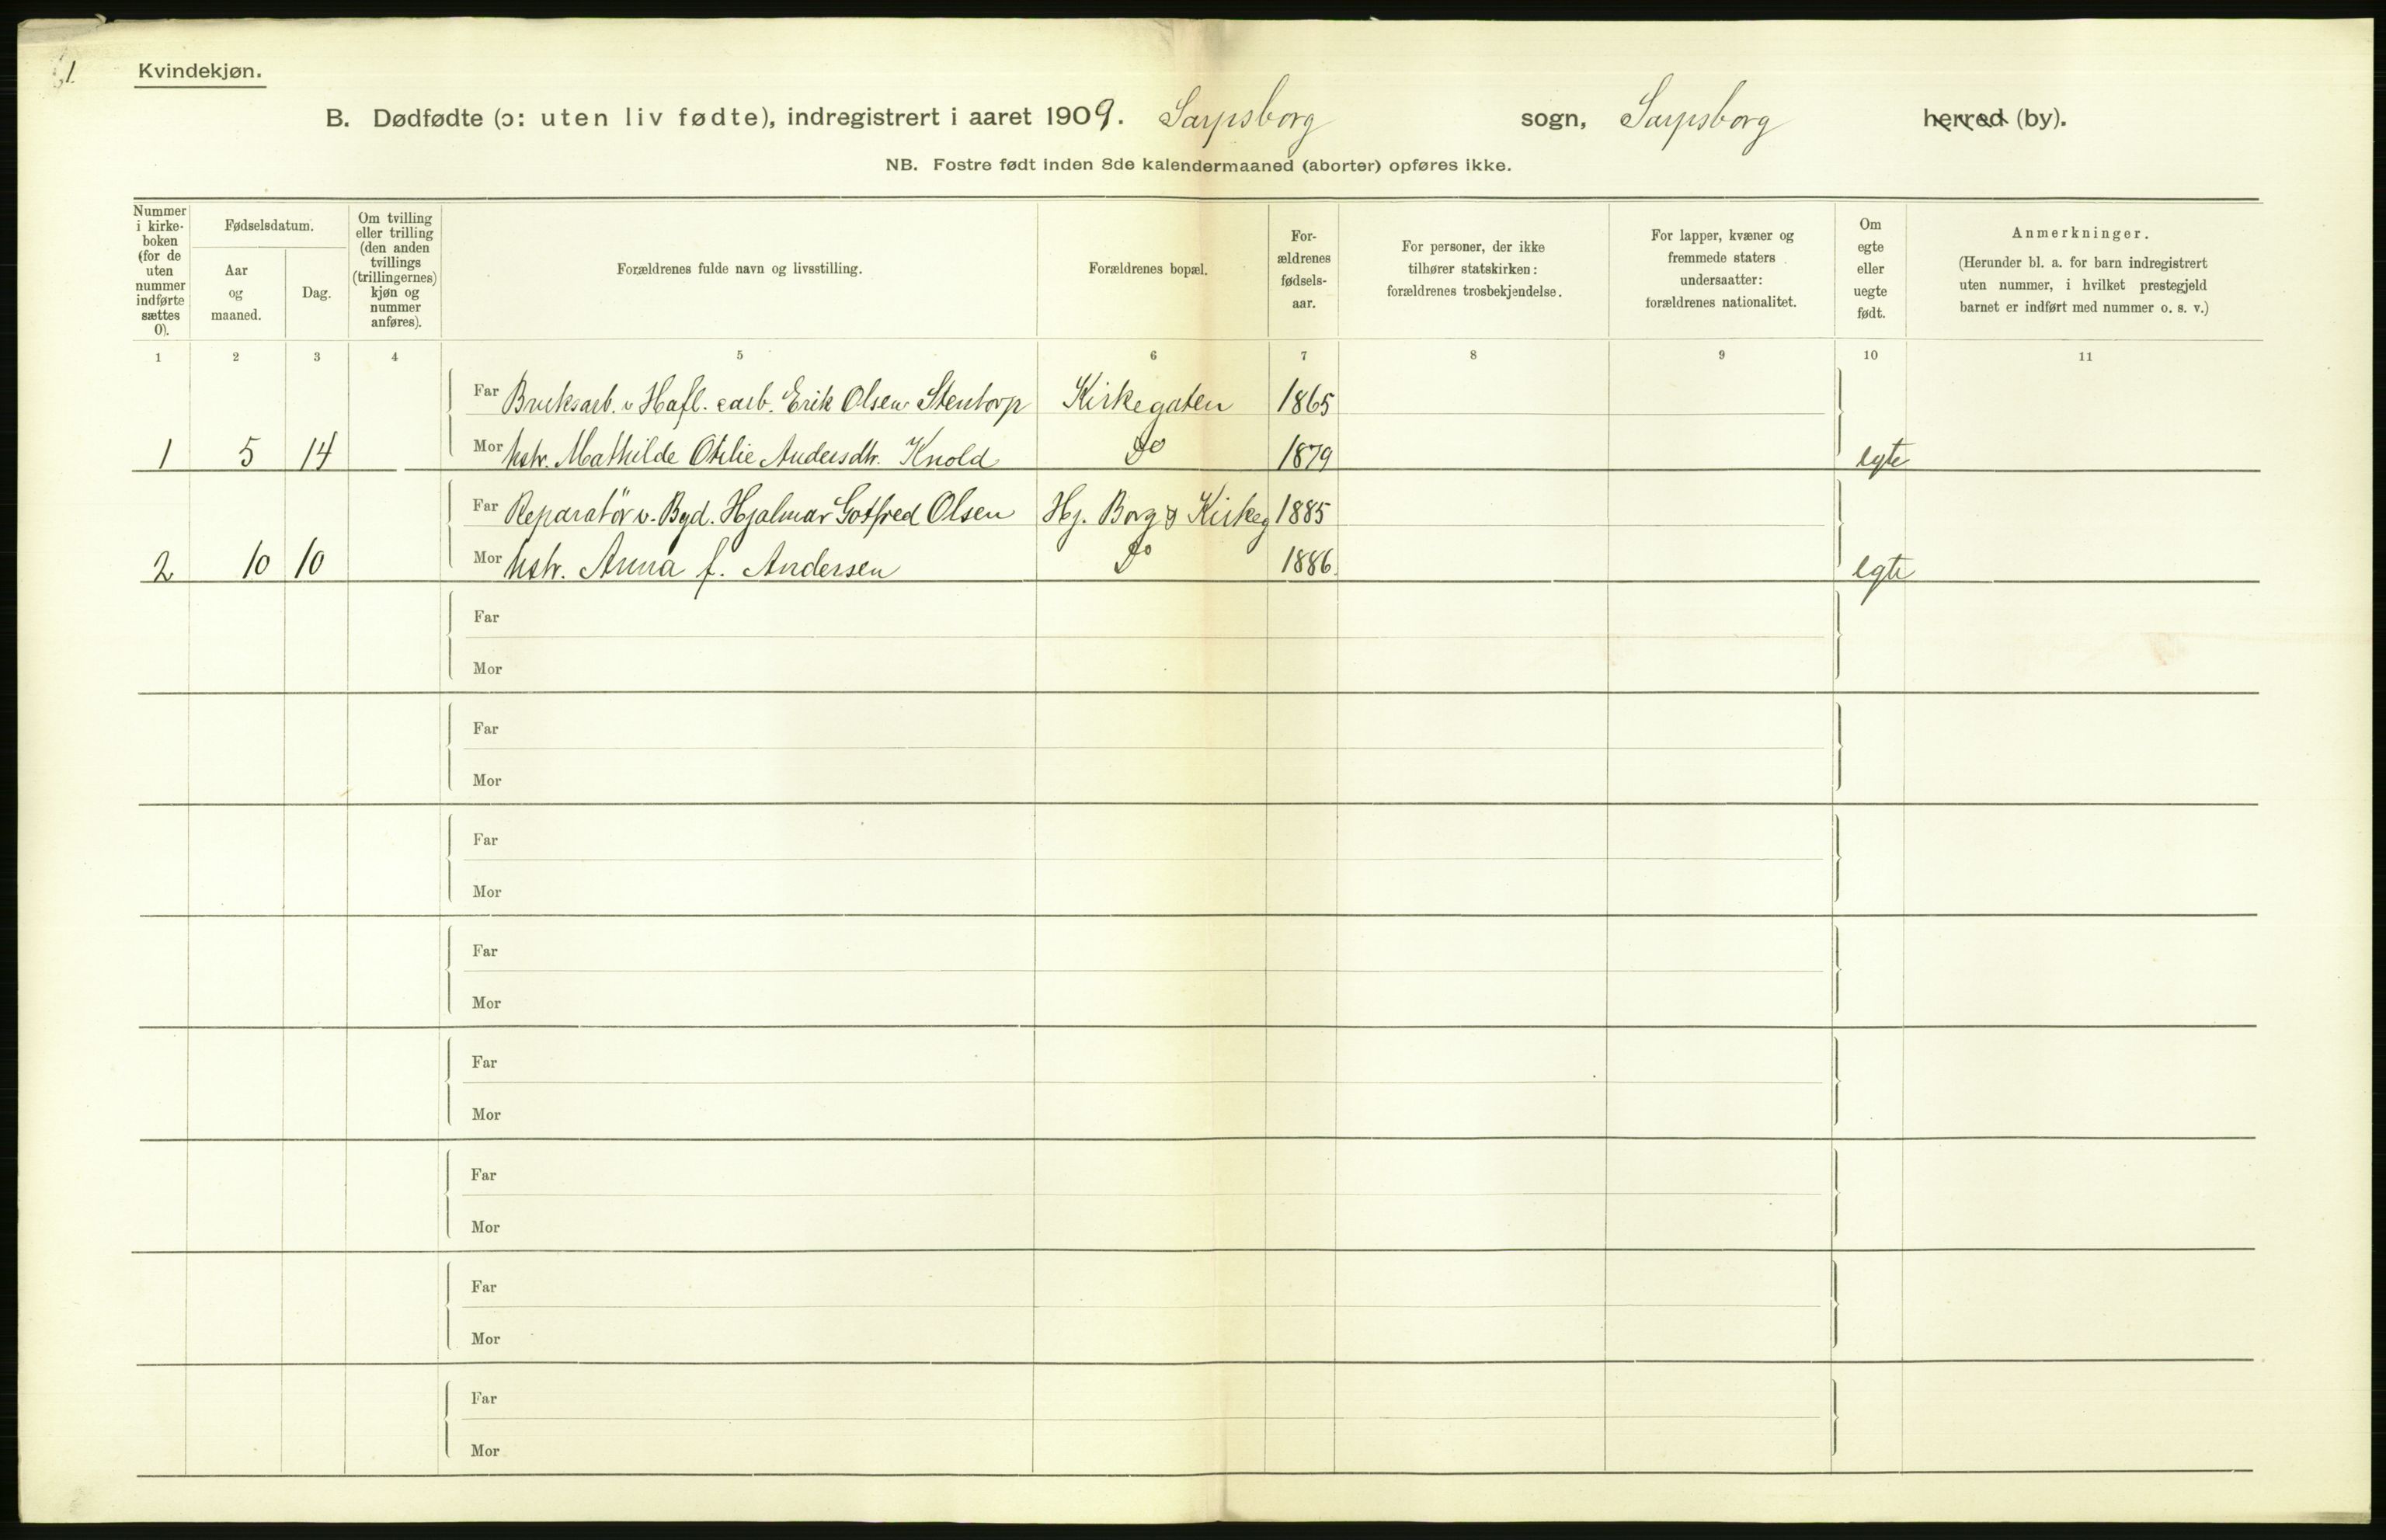 1
Kvindekjøn.
B. Dødfødte (ɔ: uten liv fødte), indregistrert i aaret 1909. Sarpsborg sogn, Sarpsborg herred (by).
NB. Fostre født inden 8de kalendermaaned (aborter) opføres ikke.
Nummer
i kirke-
boken
(for de
uten
nummer
indførte
sættes
0).
Fødselsdatum.
Aar
og
maaned.
Dag.
Om tvilling
eller trilling
(den anden
tvillings
(trillingernes)
kjøn og
nummer
anføres).
Forældrenes fulde navn og livsstilling.
Forældrenes bopæl.
For-
ældrenes
fødsels-
aar.
For personer, der ikke
tilhører statskirken:
forældrenes trosbekjendelse.
For lapper, kvæner og
fremmede staters
undersaatter:
forældrenes nationalitet.
Om
egte
eller
uegte
født.
Anmerkninger.
(Herunder bl. a. for barn indregistrert
uten nummer, i hvilket prestegjeld
barnet er indført med nummer o. s. v.)
1 2 3 4 5 6 7 8 9 10 11
Far Bruksarb. v Hafl. Erik Olsen Stentorp Kirkegaten 1865
1 5 14 Mor Hstr. Mathilde Otilie Andersdtr. Knold Do 1879 egte
Far Reparatör v. Byd. Hjalmar Gotfred Olsen Hj. Borg & Kirkeg 1885
2 10 10 Mor Hstr. Anna f. Andersen Do 1886. egte
Far
Mor
Far
Mor
Far
Mor
Far
Mor
Far
Mor
Far
Mor
Far
Mor
Far
Mor